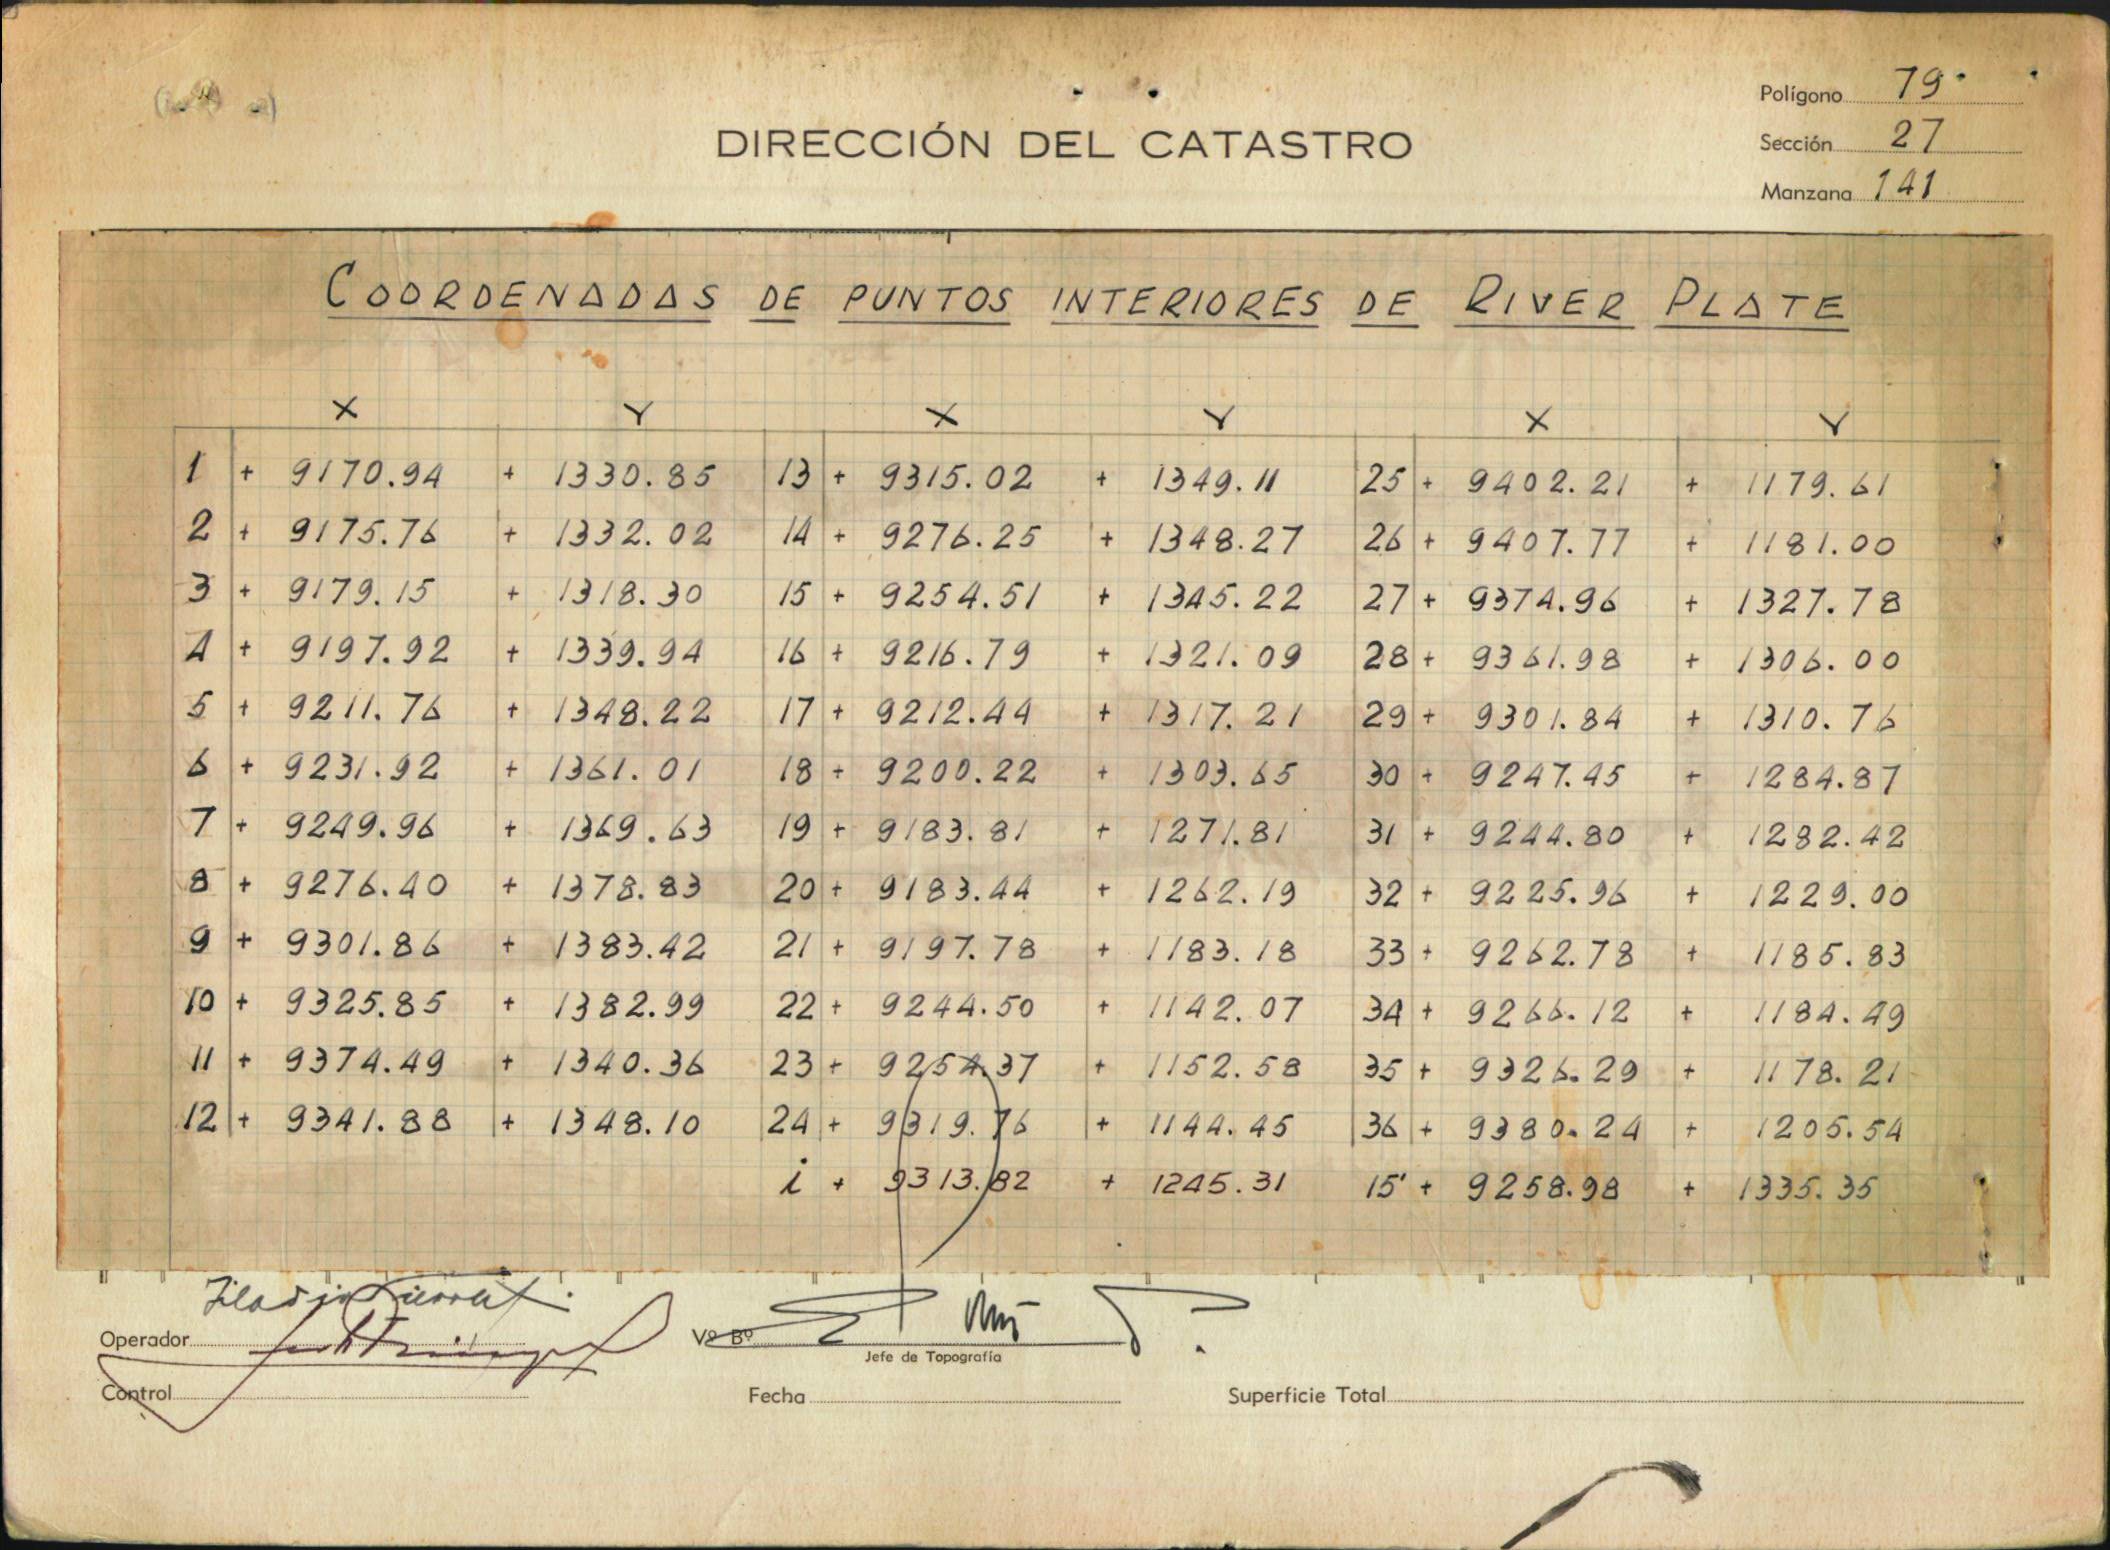 Polígono 79
DIRECCIÓN DEL CATASTRO
Sección 27
Manzana 141
COORDENADAS DE PUNTOS INTERIORES DE RIVER PLATE
X Y X Y X Y
1 + 9170.94 + 1330.85 13 + 9315.02 + 1349.11 25 + 9402.21 + 1179.61
2 + 9175.76 + 1332.02 14 + 9276.25 + 1348.27 26 + 9407.77 + 1181.00
3 + 9179.15 + 1318.30 15 + 9254.51 + 1345.22 27 + 9374.96 + 1327.78
4 + 9197.92 + 1339.94 16 + 9216.79 + 1321.09 28 + 9361.98 + 1306.00
5 + 9211.76 + 1348.22 17 + 9212.44 + 1317.21 29 + 9301.84 + 1310.76
6 + 9231.92 + 1361.01 18 + 9200.22 + 1303.65 30 + 9247.45 + 1284.87
7 + 9249.96 + 1369.63 19 + 9183.81 + 1271.81 31 + 9244.80 + 1282.42
8 + 9276.40 + 1378.83 20 + 9183.44 + 1262.19 32 + 9225.96 + 1229.00
9 + 9301.86 + 1383.42 21 + 9197.78 + 1183.18 33 + 9262.78 + 1185.83
10 + 9325.85 + 1382.99 22 + 9244.50 + 1142.07 34 + 9266.12 + 1184.49
11 + 9374.49 + 1340.36 23 + 9254.37 + 1152.58 35 + 9326.29 + 1178.21
12 + 9341.88 + 1348.10 24 + 9319.76 + 1144.45 36 + 9380.24 + 1205.54
i + 9313.82 + 1245.31 15' + 9258.98 + 1335.35
Operador Vº Bº
Jefe de Topografía
Control Fecha Superficie Total